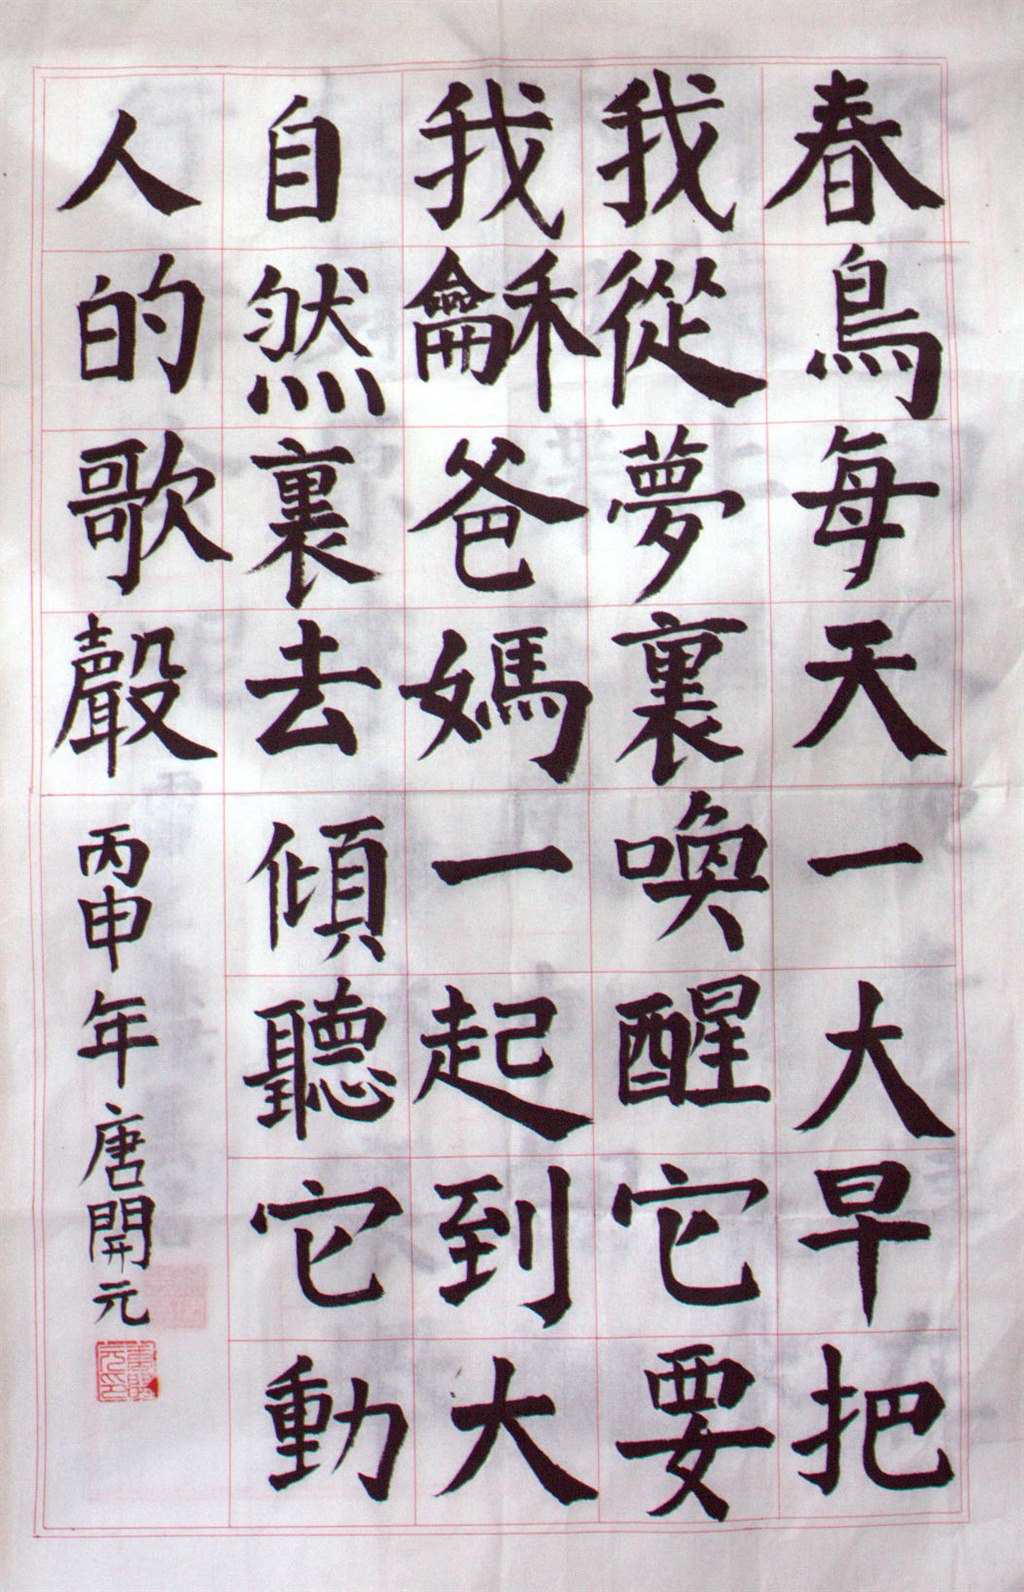 春鳥每天一大早把
我從夢裏喚醒它要
我龢爸媽一起到大
自然裏去傾聽它動
人的歌聲
丙申年唐開元